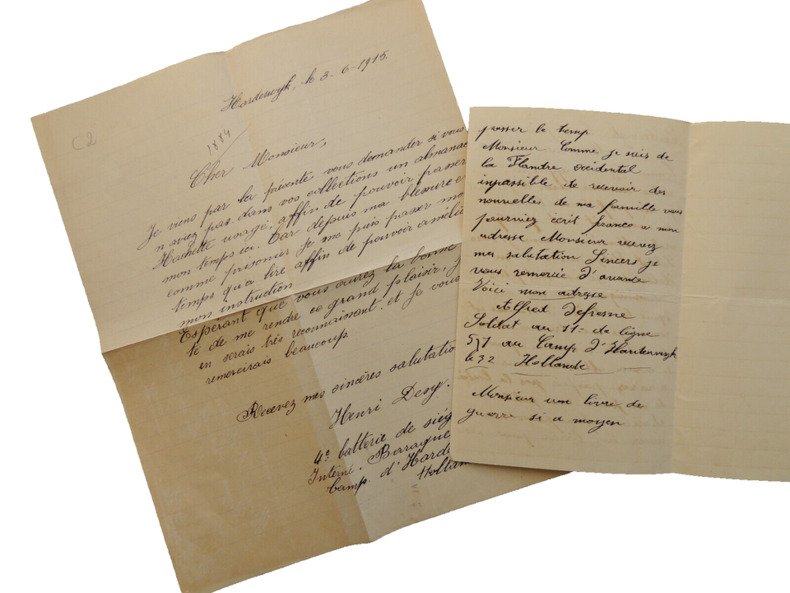 Harderwyk, le 3-6-1915.
C2
1884
Cher Monsieur,
Je viens par la présente vous demander si vous
n'avez pas dans vos collections un almanac
Hachette usagé, affin de pouvoir passer
mon temps ici. Car depuis ma blessure e
comme prisonier je ne puis passer mo
temps qu'a lire affin de pouvoir amélio
mon instruction
Espérant que vous aurez la bonne
té de me rendre ce grand plaisir, j
en serais très reconnaissant. et je vous
remercirais beaucoup.
Recevez mes sincères salutatio
Henri Desy.
4e batterie de sièg
Intern. Baraque
Camp d'Hard
Hollan
passer le temp
Monsieur Comme je suis de
la Flandre occidental
impassible de recevoir des
nouvelles de ma famille vous
pourriez écrit franco a mon
adresse Monsieur recevez
mes salutation Sincers je
vous remercie d'avance
Voici mon adresse
Alfred Defresne
Soldat au 11e de ligne
au Camp d'Harderwyk
Hollande
Monsieur une livre de
guerre si a moyen